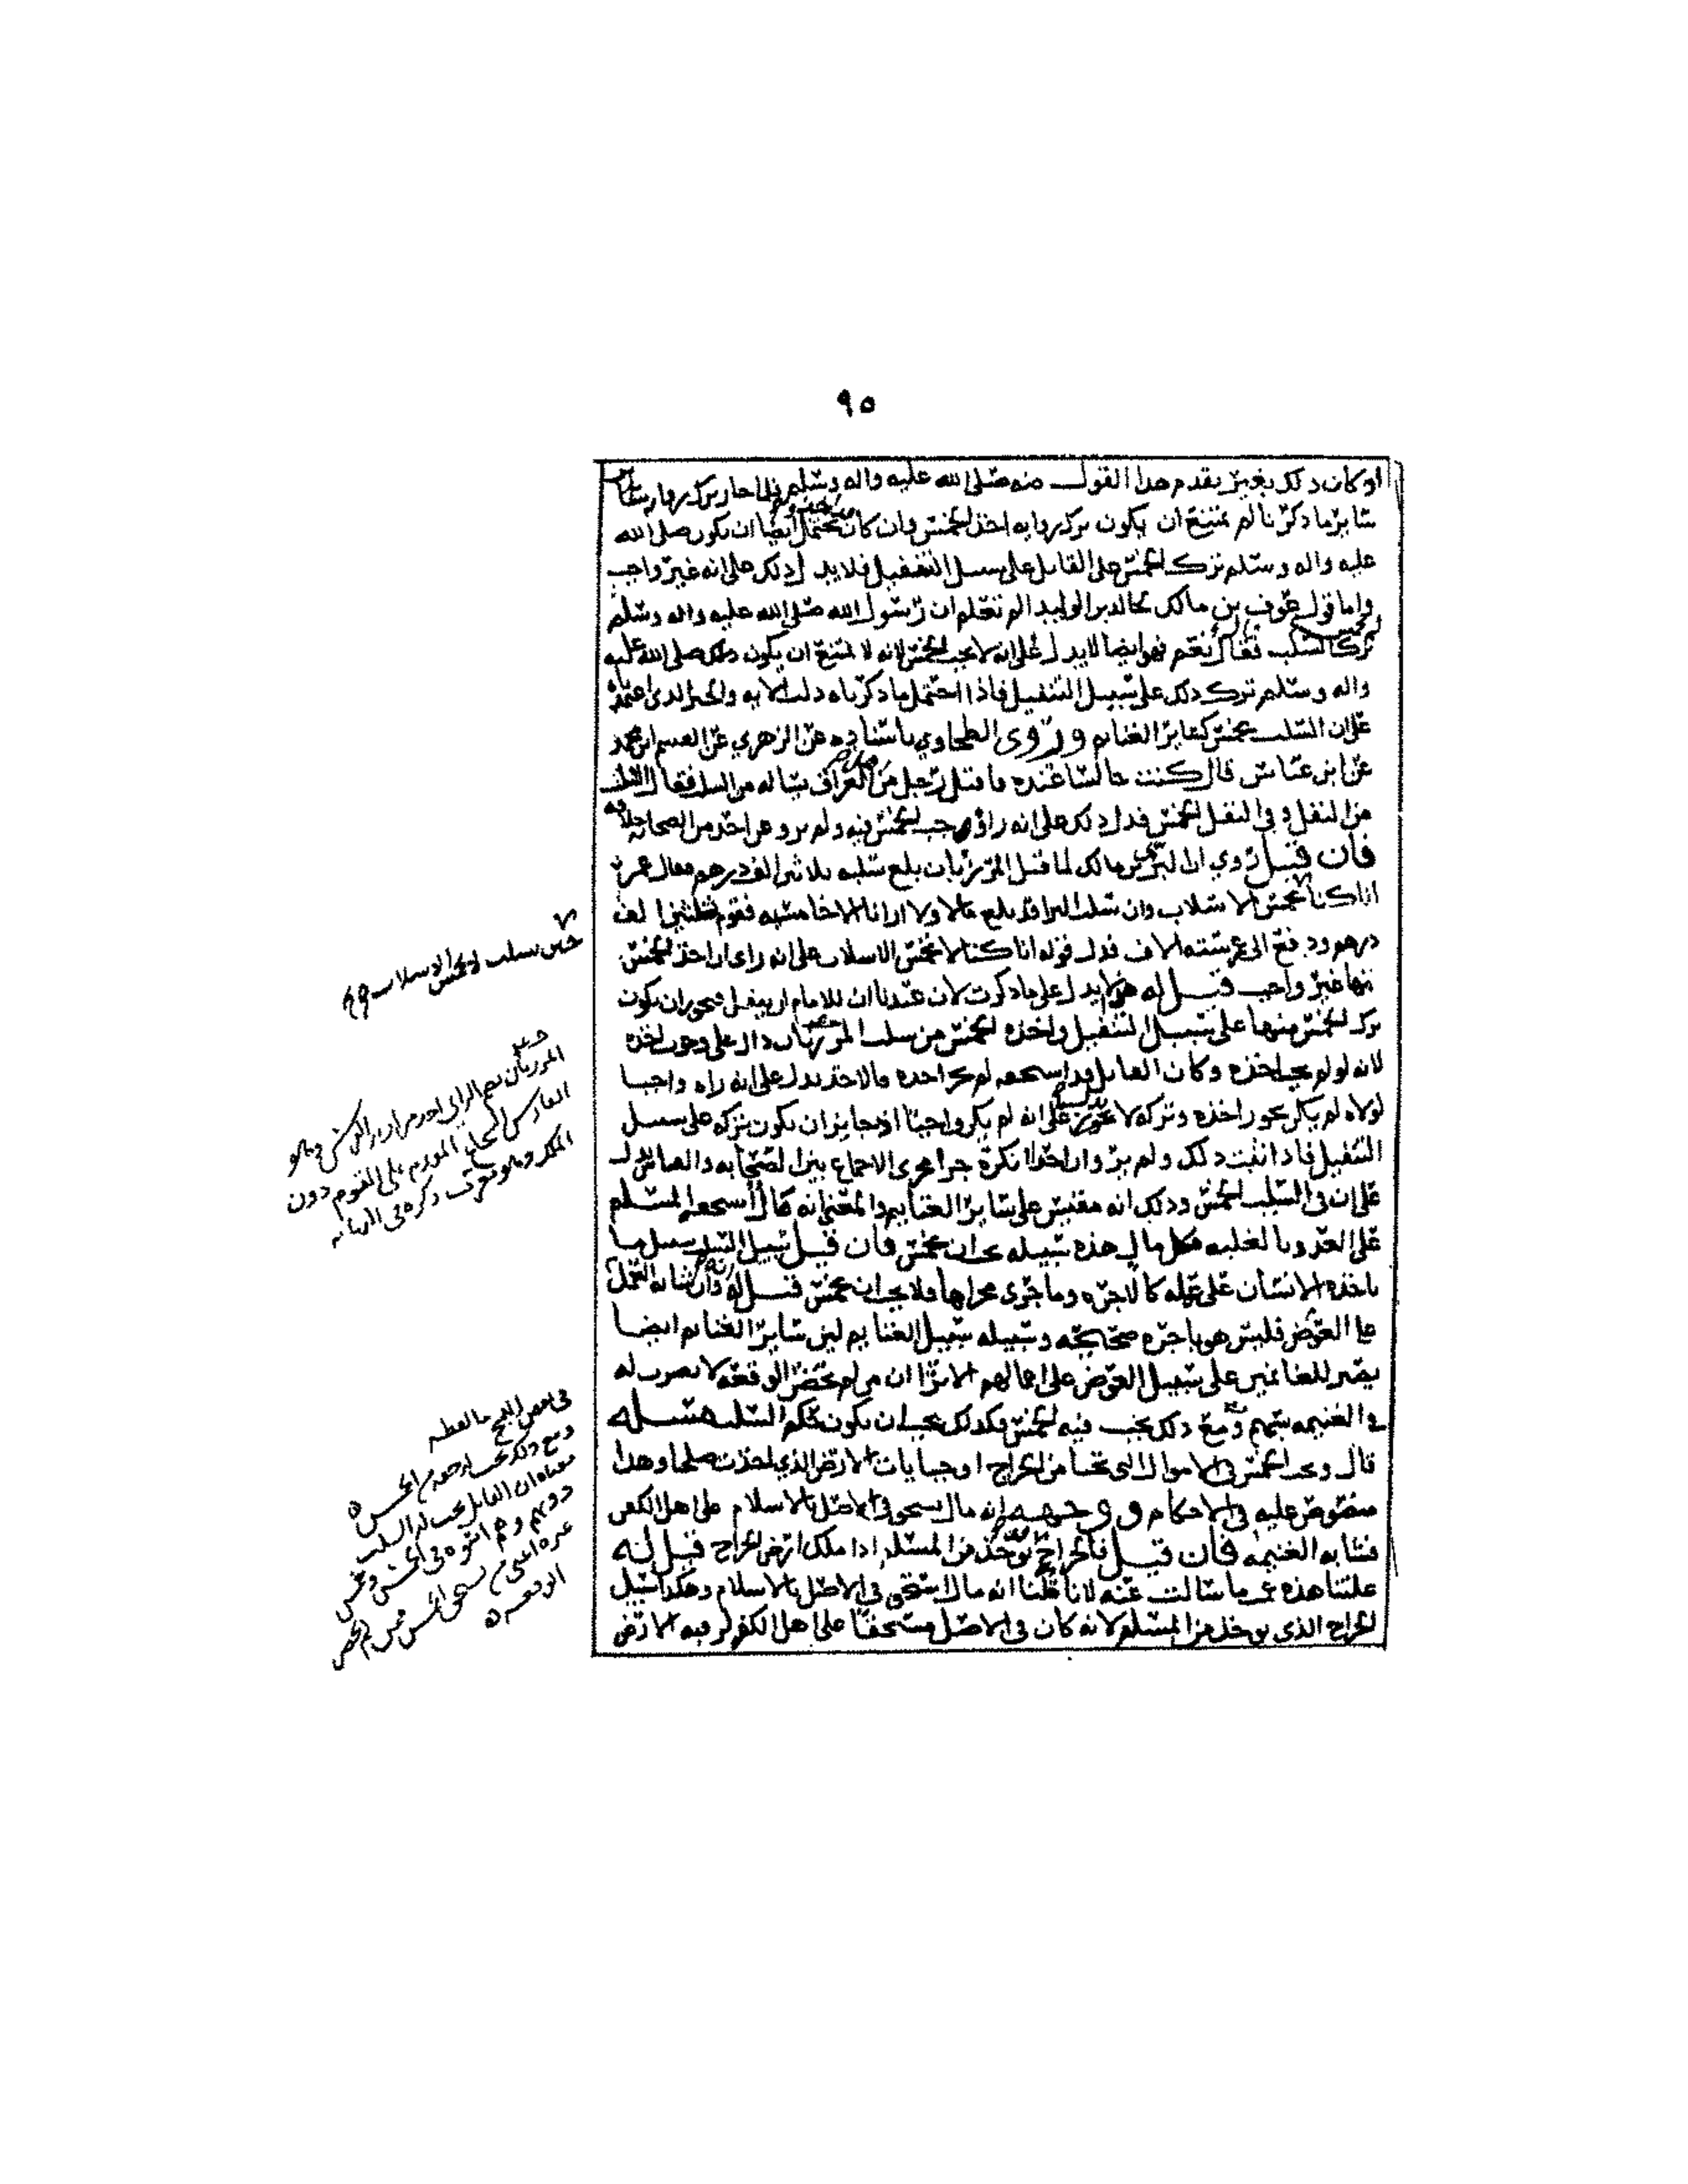 ٩٥
او كان ذلك بغير تقدم هذا القول منه صلى الله عليه واله وسلم فلما جاز
سائر ما ذكرنا لم يمتنع ان يكون ترك اخذ الخمس وان كان يحتمل ايضا ان يكون صلى الله
عليه واله وسلم ترك الخمس على القاتل على سبيل التنفيل فلا يدل ذلك على انه غير واجب
واما قول عوف بن مالك لخالد بن الوليد الم تعلم ان رسول الله صلى الله عليه واله وسلم
ترك السلب فقال نعم فهو ايضا لا يدل على انه لا يجب الخمس لانه لا يمتنع ان يكون صلى الله عليه
واله وسلم ترك ذلك على سبيل التنفيل فاذا احتمل ما ذكرناه دلت الايه والخبر الذي اعتمدناه
على ان السلب يخمس كسائر الغنائم وروى الطحاوي باسناده عن الزهري عن القسم ابن محمد
عن ابن عباس قال كنت جالسا عنده فاقبل رجل من اهل العراق يساله عن السلب فقال السلب
من النفل وفي النفل الخمس فدل ذلك على انه راى وجوب الخمس فيه ولم يرو عن احد من الصحابه خلافه
فان قيل روي ان البراء بن مالك لما قتل المرزبان بلغ سلبه ثلاثين الف درهم فقال عمر
انا كنا لا نخمس الاسلاب وان سلب البرا قد بلغ مالا ولا ارانا الا خامسيه فقوم ثلثين الف
درهم ودفع الى عمر سته الاف فدل قوله انا كنا لا نخمس الاسلاب على انه راى ان اخذ الخمس
منها غير واجب قيل له هذا لا يدل على ما ذكرت لان عندنا ان للامام ان ينفل فيجوز ان يكون
ترك الخمس منها على سبيل التنفيل واخذه الخمس من سلب المرزبان دال على وجوب اخذه
لانه لو لم يجب اخذه وكان القاتل قد استحقه لم يجز اخذه فالاخذ يدل على انه راه واجبا
لولاه لم يكن يجوز اخذه وتركه لا يدل على انه لم يكن واجبا اذ جايز ان يكون تركه على سبيل
التنفيل فاذا ثبت ذلك ولم يرو ان احدا انكره جرا مجرى الاجماع بين الصحابه والقياس يدل
على ان في السلب الخمس وذلك انه مقيس على سائر الغنايم والمعنى انه مال استحقه المسلم
على العدو بالغلبه فكل مال هذه سبيله يجب ان يخمس فان قيل سبيل السلب سبيل ما
ياخذه الانسان على عمله كالاجره وما جرى مجراها فلا يجب ان يخمس قيل له انه وان شابه العمل
على العوض فليس هو باجره صحيحه وسبيله سبيل الغنايم لان سائر الغنايم ايضا
يصير للغانمين على سبيل العوض على اعمالهم الا ترا ان من لم يحضر الوقعه لا يضرب له
في الغنيمه بسهم ومع ذلك يجب فيه الخمس فكذلك يجب ان يكون حكم السلب مسئله
قال ويجب الخمس في الاموال التي تجبا من الخراج او جبايات الارض الذي اخذت صلحا وهذا
منصوص عليه في الاحكام ووجهه انه مال يستحق في الاصل بالاسلام على اهل الكفر
فشابه الغنيمه فان قيل فالخراج قد يؤخذ من المسلم اذا ملك ارض الخراج قيل له
علتنا هذه عما سالت عنه لانا قلنا انه مال استحق في الاصل بالاسلام وهكذا سبيل
الخراج الذي يوخذ من المسلم لانه كان في الاصل مستحقا على اهل الكفر لرقبه الارض
المرزبان بضم الزاي
الفارس الشجاع المقدم على القوم دون
الملك وهو معرب ذكره في النهايه
في بعض النسخ ما لفظه